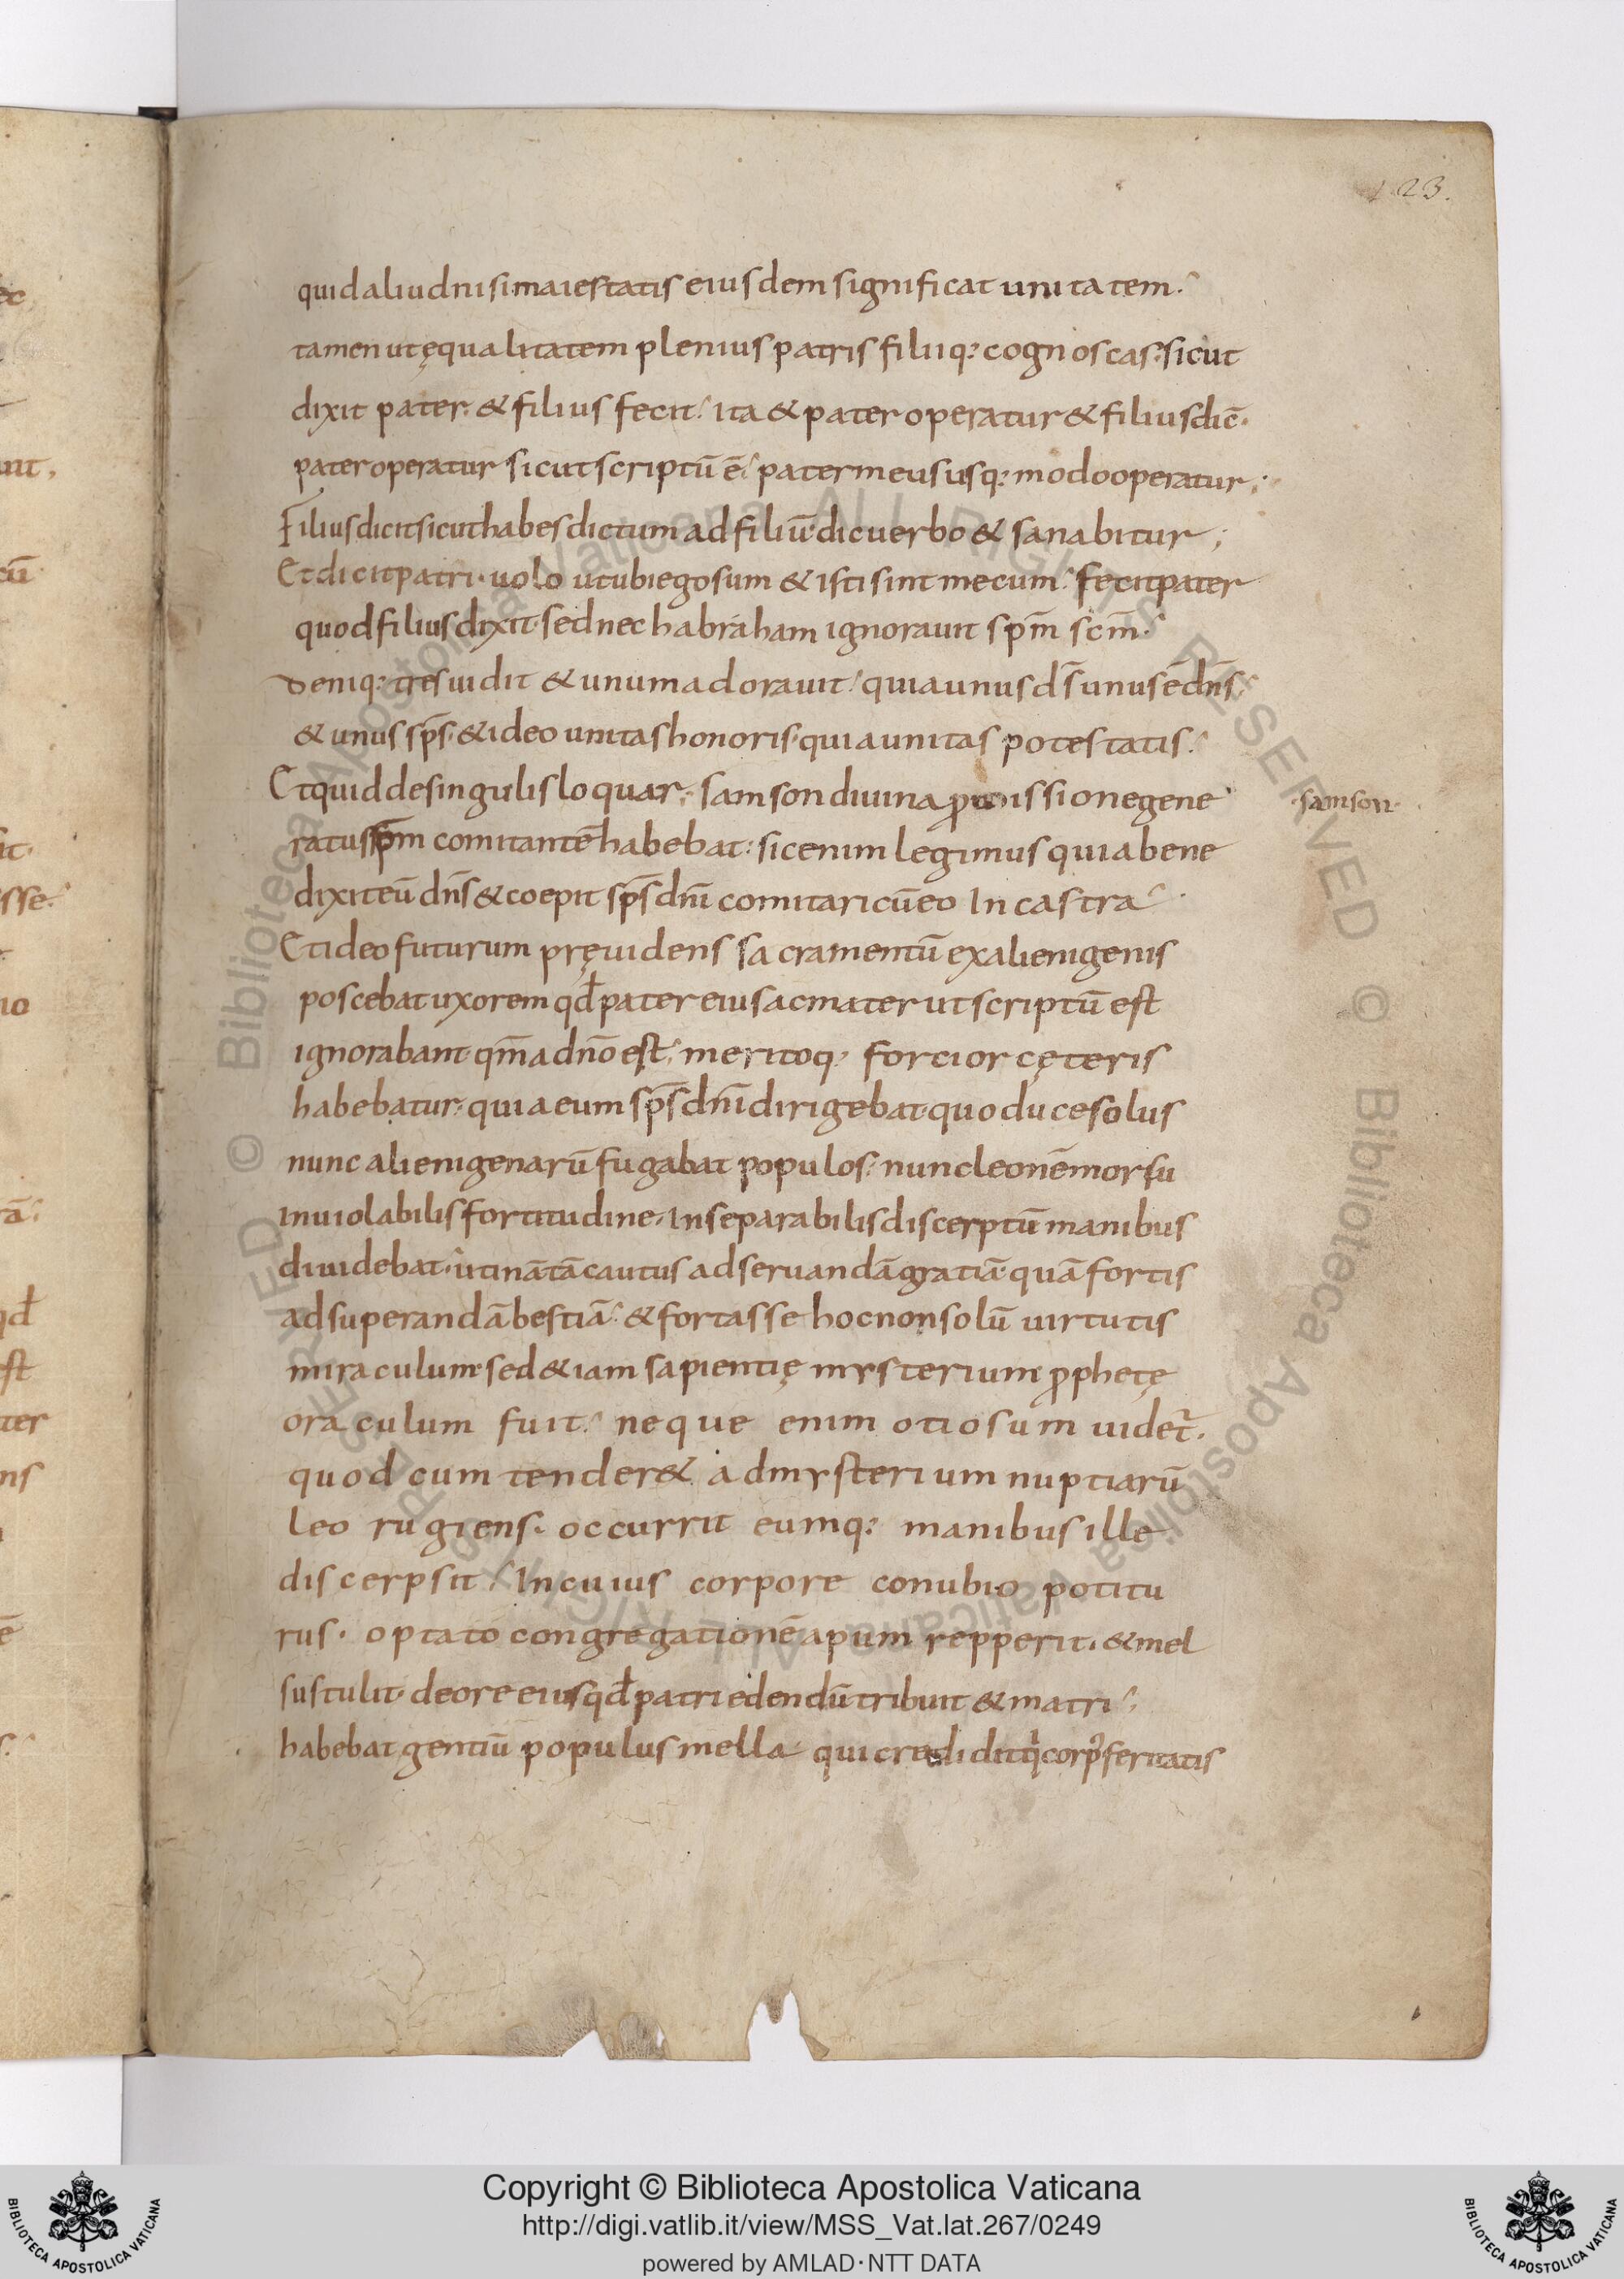 123.
quid aliud nisi maiestatis eiusdem significat unitatem.
tamen ut ęqualitatem plenius patris filiiq: cognoscas. sicut
dixit pater. & filius fecit. ita & pater operatur & filius dic̄.
pater operatur sicut scriptū ē. pater meus usq: modo operatur.
Filius dicit sicut habes dictum ad filiū. dic uerbo & sanabitur;
Et dicit patri. uolo ut ubi ego sum & isti sint mecum. fecit pater
quod filius dixit. sed nec habraham ignorauit sp̄m sc̄m.
Deniq: tres uidit & unum adorauit. quia unus ds̄ unus ē dn̄s.
& unus sp̄s. & ideo unitas honoris. quia unitas potestatis.
Et quid de singulis loquar. samson diuina ꝓmissione gene
·samson·
ratus sp̄m comitantē habebat: sic enim legimus quia bene
dixit eū dn̄s & coepit sp̄s dn̄i comitari cū eo In castra
Et ideo futurum pręuidens sacramentū ex alienigenis
poscebat uxorem qđ pater eius ac mater ut scriptū est
ignorabant. qm̄ a dn̄o est. meritoq. forcior cęteris
habebatur. quia eum sp̄s dn̄i dirigebat. quo duce solus
nunc alienigenarū fugabat populos. nunc leonē morsu
inuiolabilis fortitudine. Inseparabilis discerptū manibus
diuidebat. utinā tā cautus ad seruandā gratiā quā fortis
ad superandā bestiā. & fortasse hoc non solū uirtutis
miraculum. sed & iam sapientię mysterium ꝓphetę
oraculum fuit. neque enim otiosum uidet̄.
quod cum tender& ad mysterium nuptiarū
leo rugiens. occurrit eumq: manibus ille
discerpsit. In cuius corpore conubio potitu
rus. optato congregationē apum repperit. & mel
sustulit. de ore eius qđ patri edendū tribuit & matri.
habebat gentiū populus mella qui credidit q̄ corp̄ feritatis
Copyright © Biblioteca Apostolica Vaticana
http://digi.vatlib.it/view/MSS_Vat.lat.267/0249
powered by AMLAD·NTT DATA
BIBLIOTECA APOSTOLICA VATICANA
BIBLIOTECA APOSTOLICA VATICANA
© Biblioteca Apostolica Vaticana ALL RIGHTS RESERVED © Biblioteca Apostolica Vaticana ALL RIGHTS RESERVED